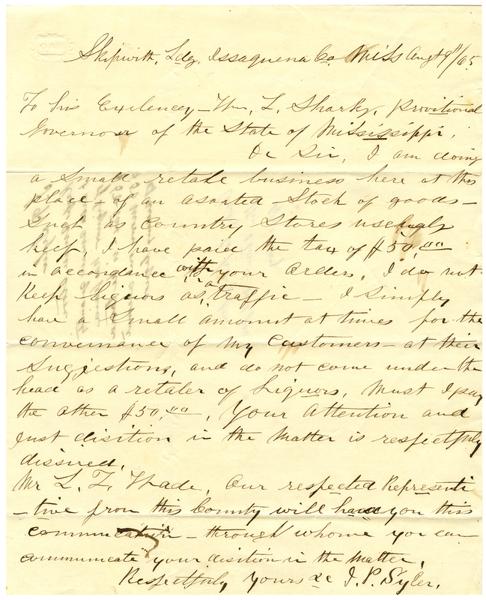 Skipwith, Ldg, Issaquena Co. Miss Augt 9"/65
To his Exelency - Wm, L. Sharky, provitional
Governour of the State of Mississippi,
De Sir, I am doing
a Small retale business here at this
place - of an asoated Stock of goods -
Such as Country Stores useually
keep, I have paid the tax of $50,00
in accordance with your orders, I do not
Keep Liquors as a traffic - I simply
have a Small amount at times for the
convernance of my customers - at their
Suggestions, and do not come under the
head as a retaler of Liquors, Must I pay
the other $50,00, Your Attention and
Just disition in the Matter is respectfully
dissired,
Mr L. F. Our respected Representi
-tive from this County will hand you this
communcation - through whome you can
communicate your disition in the Matter,
Respectfuly Yours &c J. P. Syler,